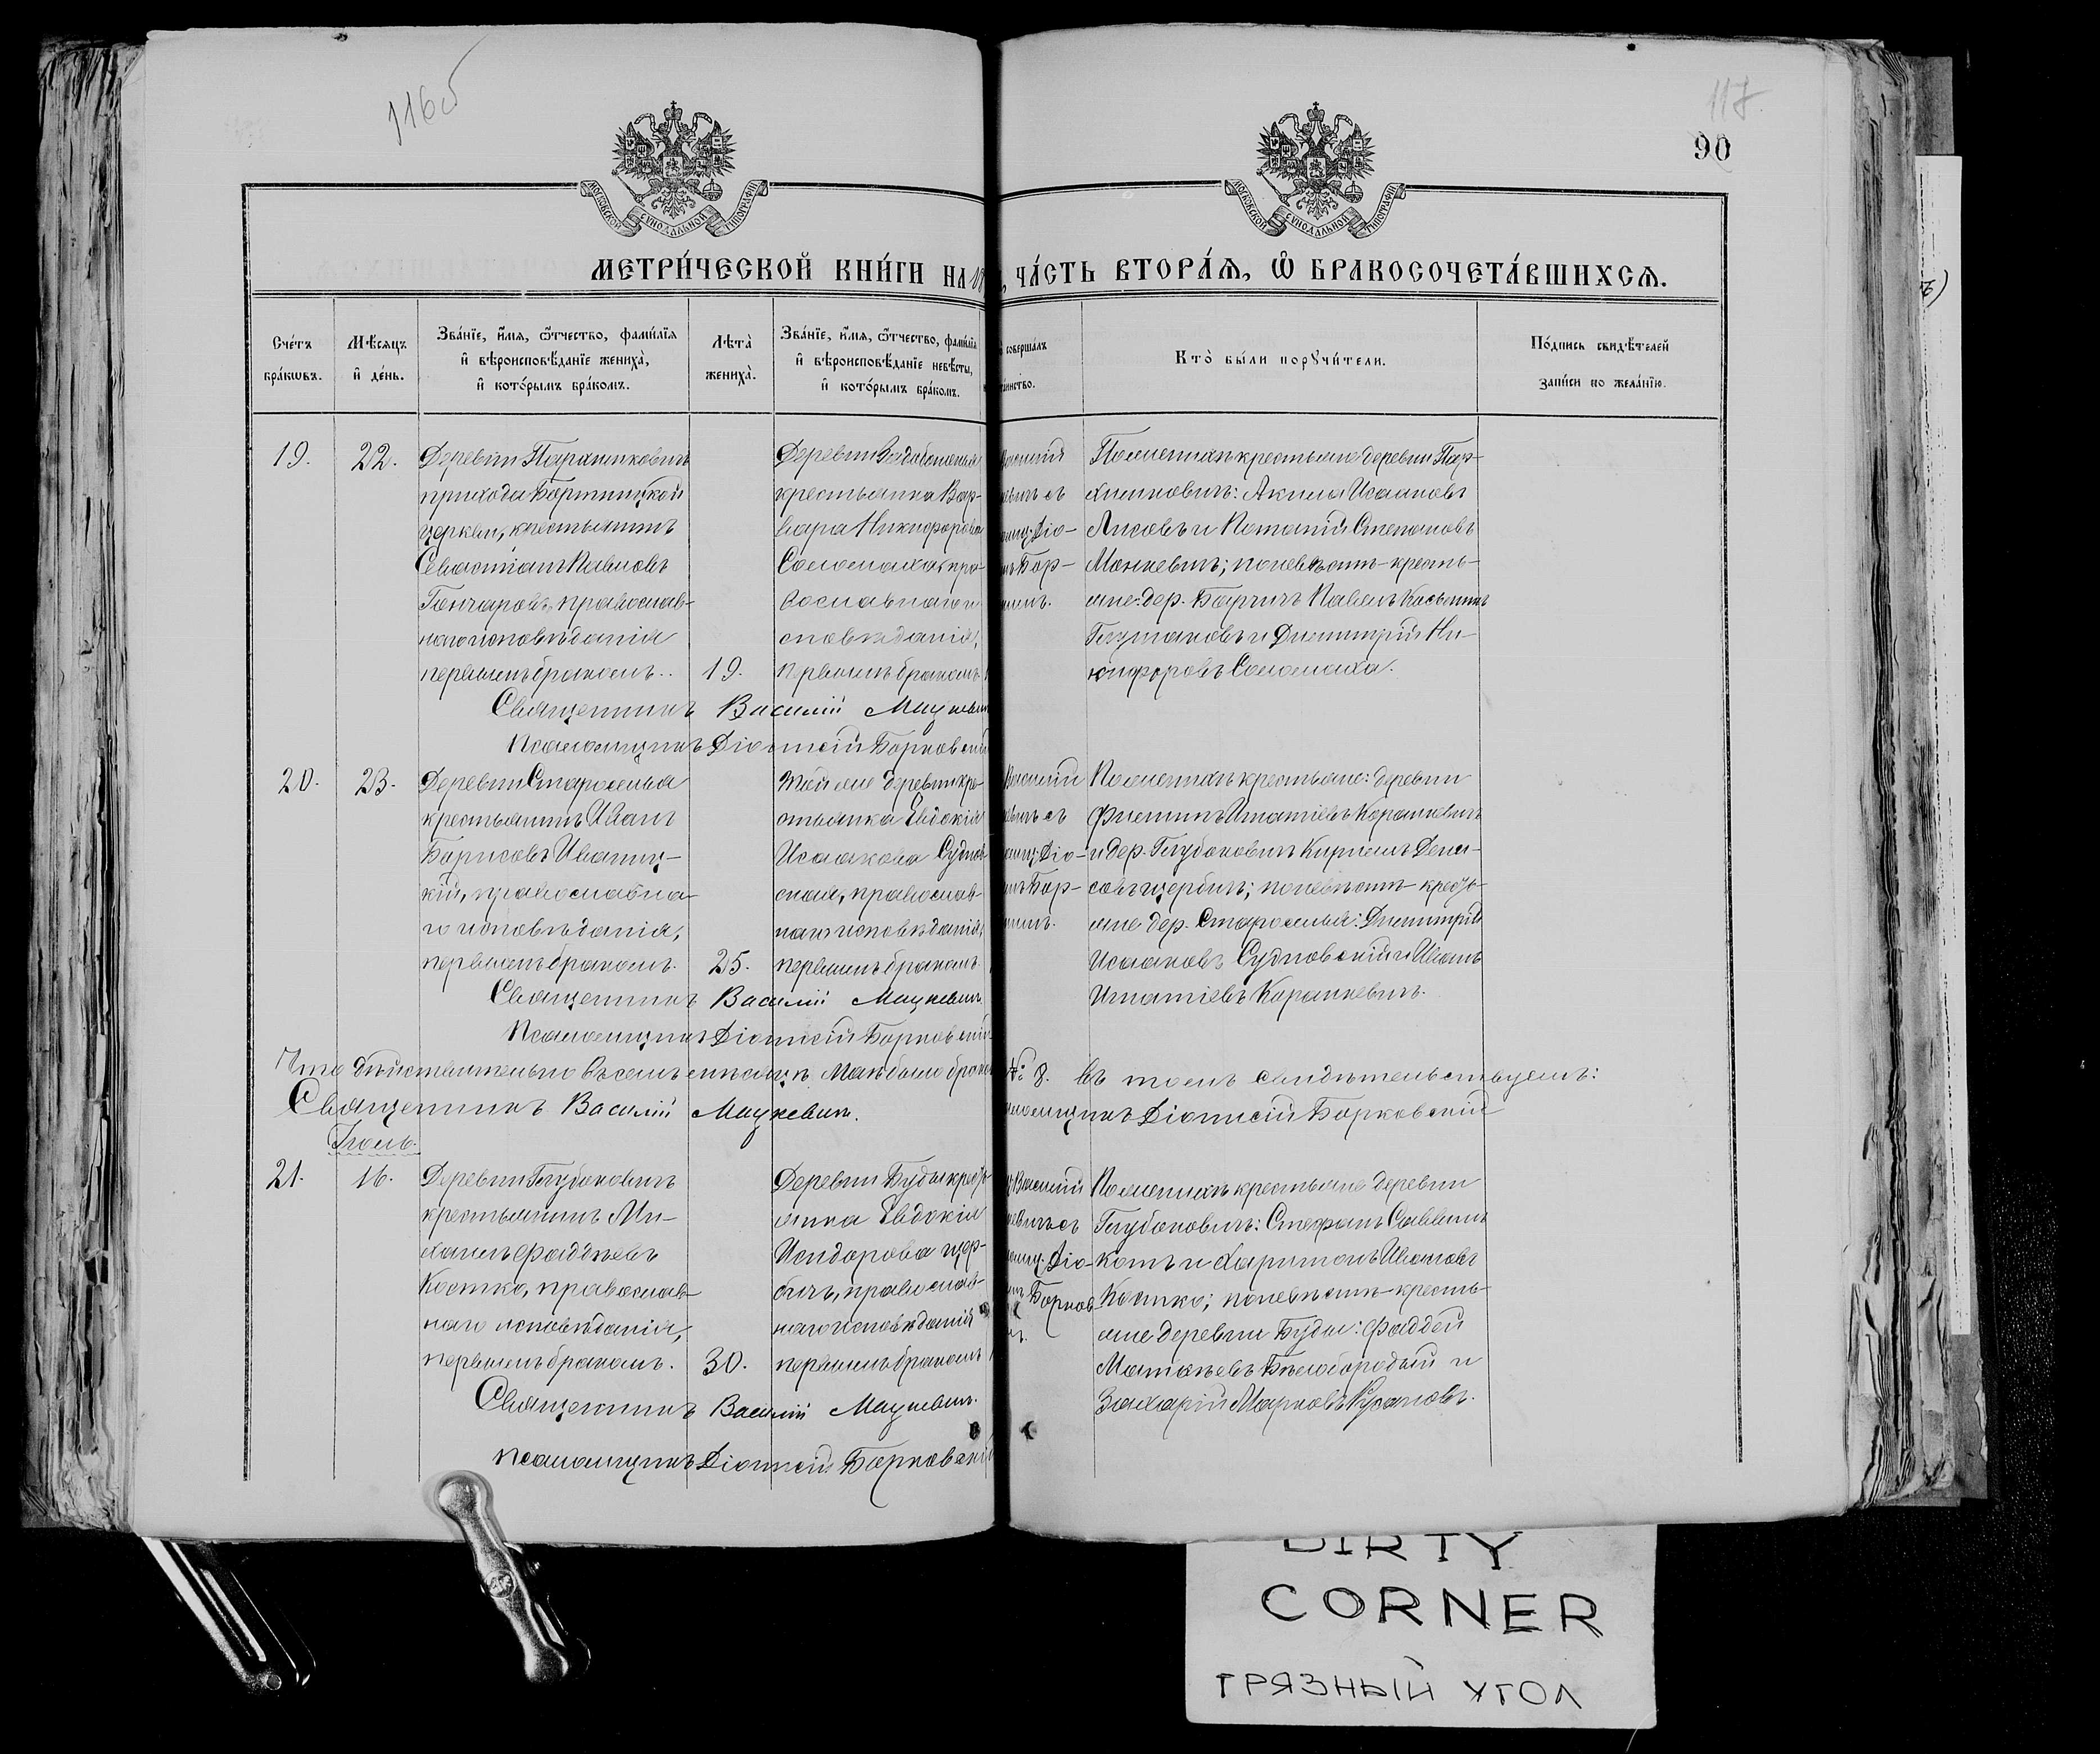 116об
117.
90
МОСКОВСКОЙ СѴНОДАЛЬНОЙ ТИПОГРАФІИ
МОСКОВСКОЙ СѴНОДАЛЬНОЙ ТИПОГРАФІИ
МЕТРИ́ЧЕСКОЙ КНИ́ГИ НА 18
ЧА́СТЬ ВТОРА́Ѧ, Ѽ БРАКОСОЧЕТА́ВШИХСѦ.
Сче́тъ бра́кѡвъ.
Мѣ́сѧцъ и҆ де́нь.
Зва́нїе, и҆́мѧ, ѻ҆́тчество, фами́лїѧ и҆ вѣроисповѣ́данїе жениха̀, и҆ кото́рымъ бра́комъ.
Лѣта̀ жениха̀.
Зва́нїе, и҆́мѧ, ѻ҆́тчество, фами́лїѧ и҆ вѣроисповѣ́данїе невѣ́сты, и҆ кото́рымъ бра́комъ.
соверша́лъ
та́инство.
Кто̀ бы́ли порꙋчи́тели.
По́дпись свидѣ́телей за́писи по жела́нїю.
19.
22.
прихода Бортницкой
церкви, крестьянинъ
Севастіанъ Павловъ
Гончаровъ, православ-
наго исповѣданія
первымъ бракомъ.
19.
крестьянка Вар-
вара Никифорова
Соломаха, пра-
вославнаго и
сповѣданія,
первымъ бракомъ
По женихѣ крестьяне деревни Пар-
химковичъ: Акила Исааковъ
Лисовъ и Потапій Степановъ
Манкевичъ; по невѣстѣ-кресть-
яне: дер. Павелъ
и Димитрій Ни-
кифоровъ Соломаха.
Священникъ Василій Мацкевичъ
Псаломщикъ Діонисій Борковскій
20.
23.
Деревни Староселья
крестьянинъ Иванъ
Борисовъ Иваниц-
кій, православна-
го исповѣданія,
первымъ бракомъ.
25.
Той же деревни кре-
стьянка Евдокія
Исаакова Суднов-
ская, православ-
наго исповѣданія,
первымъ бракомъ
По женихѣ крестьяне: деревни
Филиппъ Игнатіевъ Корамкевичъ
и дер. Глубоковичъ Кириллъ Дени-
совъ Щербичъ; по невѣстѣ-кресть-
яне дер. Староселья: Димитрій
Исааковъ Судновскій и Иванъ
Игнатіевъ Корамкевичъ.
Священникъ Василій Мацкевичъ.
Псаломщикъ Діонисій Борковскій
Что дѣйствительно въ семъ мѣсяцѣ Маѣ было браковъ
№: 8. въ томъ свидѣтельствуемъ:
Священникъ Василій Мацкевичъ.
Псаломщикъ Діонисій Борковскій
Іюль.
21.
16.
Деревни Глубоковичъ
крестьянинъ Ми-
хаилъ Фаддѣевъ
Костко, православ-
наго исповѣданія,
первымъ бракомъ.
30.
Деревни Буды кресть-
янка Евдокія
Исидорова Щер-
бичъ, православ-
наго исповѣданія
первымъ бракомъ
По женихѣ крестьяне деревни
Глубоковичъ: Стефанъ Саввинъ
Котъ и Харитонъ Ивановъ
Костко; по невѣстѣ-кресть-
яне деревни Буды: Фаддей
Матвѣевъ Бѣлобородый и
Захарій Марковъ Русаковъ.
Священникъ Василій Мацкевичъ.
Псаломщикъ Діонисій Борковскій
DIRTY
CORNER
ГРЯЗНЫЙ УГОЛ